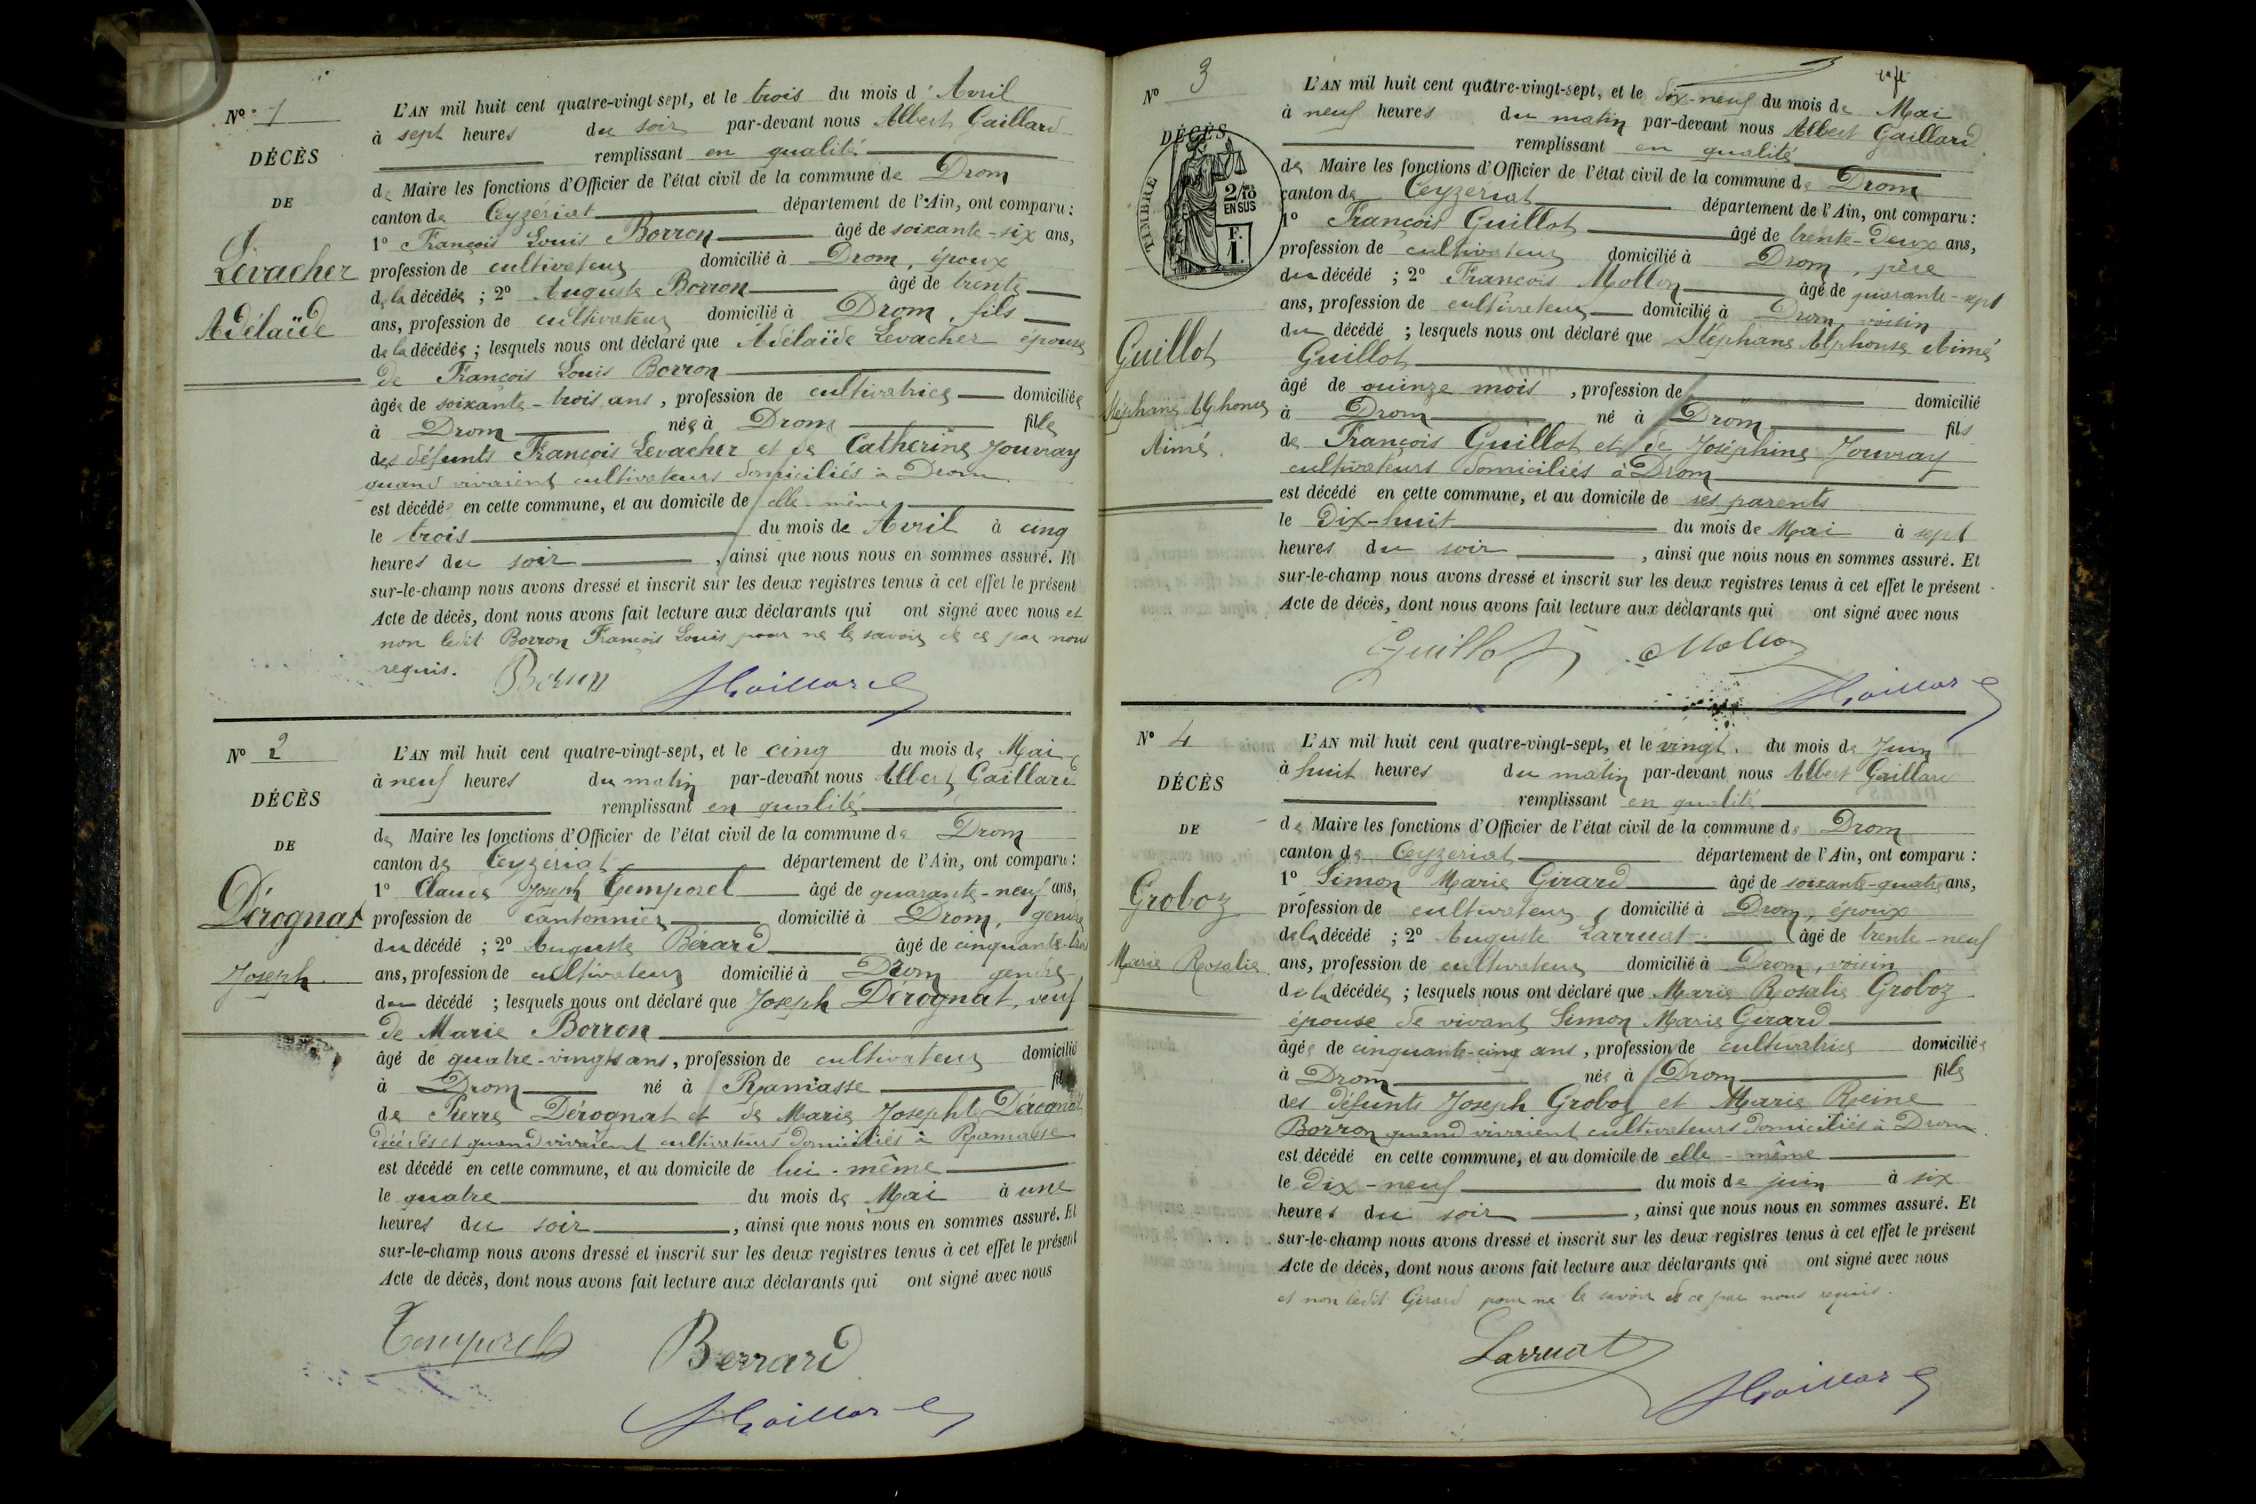 Nº 1
DÉCÈS
DE
Levacher
Adélaïde
L'AN mil huit cent quatre-vingt sept, et le trois du mois d'Avril
à sept heures du soir par-devant nous Albert Gaillard
remplissant en qualité
de Maire les fonctions d'Officier de l'état civil de la commune de Drom
canton de Ceyzériat département de l'Ain, ont comparu :
1º François Louis Borron âgé de soixante-six ans,
profession de cultivateur domicilié à Drom, époux
de la décédée ; 2º Auguste Borron âgé de trente
ans, profession de cultivateur domicilié à Drom, fils
de la décédée ; lesquels nous ont déclaré que Adélaïde Levacher épouse
de François Louis Borron
âgée de soixante-trois ans, profession de cultivatrice domiciliée
à Drom née à Drom fille
des défunts François Levacher et de Catherine Jouvray
quand vivaient cultivateurs domiciliés à Drom
est décédée en cette commune, et au domicile de elle-même
le trois du mois de Avril à cinq
heures du soir, ainsi que nous nous en sommes assuré. Et
sur-le-champ nous avons dressé et inscrit sur les deux registres tenus à cet effet le présent
Acte de décès, dont nous avons fait lecture aux déclarants qui ont signé avec nous et
non ledit Borron François Louis pour ne le savoir de ce par nous
requis.
Borron Gaillard
Nº 2
DÉCÈS
DE
Dérognat
Joseph
L'AN mil huit cent quatre-vingt-sept, et le cinq du mois de Mai
à neuf heures du matin par-devant nous Albert Gaillard
remplissant en qualité
de Maire les fonctions d'Officier de l'état civil de la commune de Drom
canton de Ceyzériat département de l'Ain, ont comparu :
1º Claude Joseph Temporel âgé de quarante-neuf ans,
profession de cantonnier domicilié à Drom, gendre
du décédé ; 2º Auguste Bérard âgé de cinquante-
ans, profession de cultivateur domicilié à Drom gendre
du décédé ; lesquels nous ont déclaré que Joseph Dérognat, veuf
de Marie Borron
âgé de quatre-vingts ans, profession de cultivateur domicilié
à Drom né à Ramasse fils
de Pierre Dérognat et de Marie Josephte Dérognat
décédés et quand vivaient cultivateurs domiciliés à Ramasse
est décédé en cette commune, et au domicile de lui-même
le quatre du mois de Mai à une
heures du soir, ainsi que nous nous en sommes assuré. Et
sur-le-champ nous avons dressé et inscrit sur les deux registres tenus à cet effet le présent
Acte de décès, dont nous avons fait lecture aux déclarants qui ont signé avec nous
Temporel Berrard
Gaillard
Nº 3
DÉCÈS
TIMBRE
2/10 EN SUS
F. 1.
Guillot
Stéphane Alphonse
Aimé
L'AN mil huit cent quatre-vingt-sept, et le dix-neuf du mois de Mai
à neuf heures du matin par-devant nous Albert Gaillard
remplissant en qualité
de Maire les fonctions d'Officier de l'état civil de la commune de Drom
canton de Ceyzeriat département de l'Ain, ont comparu :
1º François Guillot âgé de trente-deux ans,
profession de cultivateur domicilié à Drom, père
du décédé ; 2º François Mollon âgé de quarante-sept
ans, profession de cultivateur domicilié à Drom voisin
du décédé ; lesquels nous ont déclaré que Stéphane Alphonse Aimé
Guillot
âgé de quinze mois, profession de domicilié
à Drom né à Drom fils
de François Guillot et de Joséphine Jouvray
cultivateurs domiciliés à Drom
est décédé en cette commune, et au domicile de ses parents
le dix-huit du mois de Mai à sept
heures du soir, ainsi que nous nous en sommes assuré. Et
sur-le-champ nous avons dressé et inscrit sur les deux registres tenus à cet effet le présent
Acte de décès, dont nous avons fait lecture aux déclarants qui ont signé avec nous
Guillot Mollon
Gaillard
Nº 4
DÉCÈS
DE
Groboz
Marie Rosalie
L'AN mil huit cent quatre-vingt-sept, et le vingt du mois de Juin
à huit heures du matin par-devant nous Albert Gaillard
remplissant en qualité
de Maire les fonctions d'Officier de l'état civil de la commune de Drom
canton de Ceyzeriat département de l'Ain, ont comparu :
1º Simon Marie Girard âgé de soixante-quatre ans,
profession de cultivateur domicilié à Drom, époux
de la décédé ; 2º Auguste Larruat âgé de trente-neuf
ans, profession de cultivateur domicilié à Drom, voisin
de la décédée ; lesquels nous ont déclaré que Marie Rosalie Groboz
épouse de vivant Simon Marie Girard
âgée de cinquante-cinq ans, profession de cultivatrice domiciliée
à Drom née à Drom fille
des défunts Joseph Groboz et Marie Reine
Borron quand vivaient cultivateurs domiciliés à Drom
est décédé en cette commune, et au domicile de elle-même
le dix-neuf du mois de juin à six
heures du soir, ainsi que nous nous en sommes assuré. Et
sur-le-champ nous avons dressé et inscrit sur les deux registres tenus à cet effet le présent
Acte de décès, dont nous avons fait lecture aux déclarants qui ont signé avec nous
et non ledit Girard pour ne le savoir de ce par nous requis.
Larruat
Gaillard